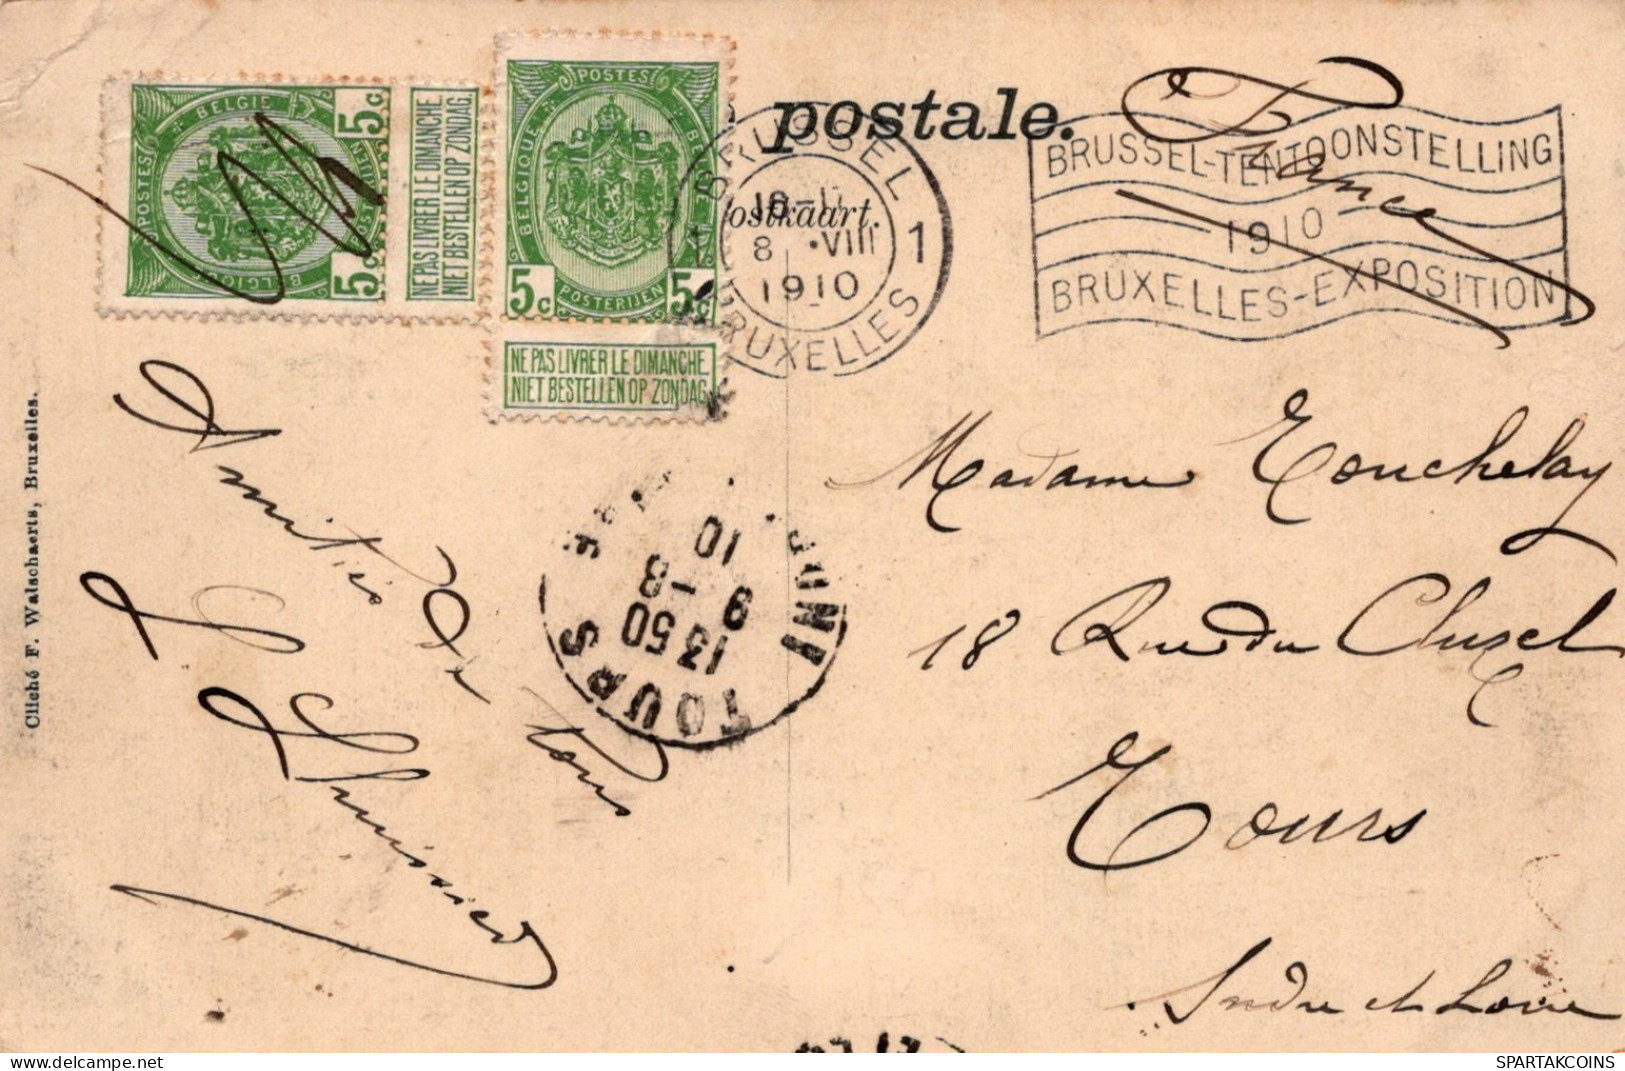 postale.
Postkaart.
France
BRUSSEL 1 BRUXELLES 1
8 VIII
1910
BRUSSEL-TENTOONSTELLING
1910
BRUXELLES-EXPOSITION
POSTES
BELGIE
BELGIQUE
5c 5c
NE PAS LIVRER LE DIMANCHE
NIET BESTELLEN OP ZONDAG
POSTES
BELGIQUE
BELGIE
POSTERIJEN
5c 5c
NE PAS LIVRER LE DIMANCHE
NIET BESTELLEN OP ZONDAG
Madame Touchelay
18 Rue du Cluzel
Tours
Indre et Loire
Amitiés
à tous
TOURS
13 50
9 -8
10
INDR
Cliché F. Walschaerts, Bruxelles.
WWW.DELCAMPE.NET
SPARTAKCOINS